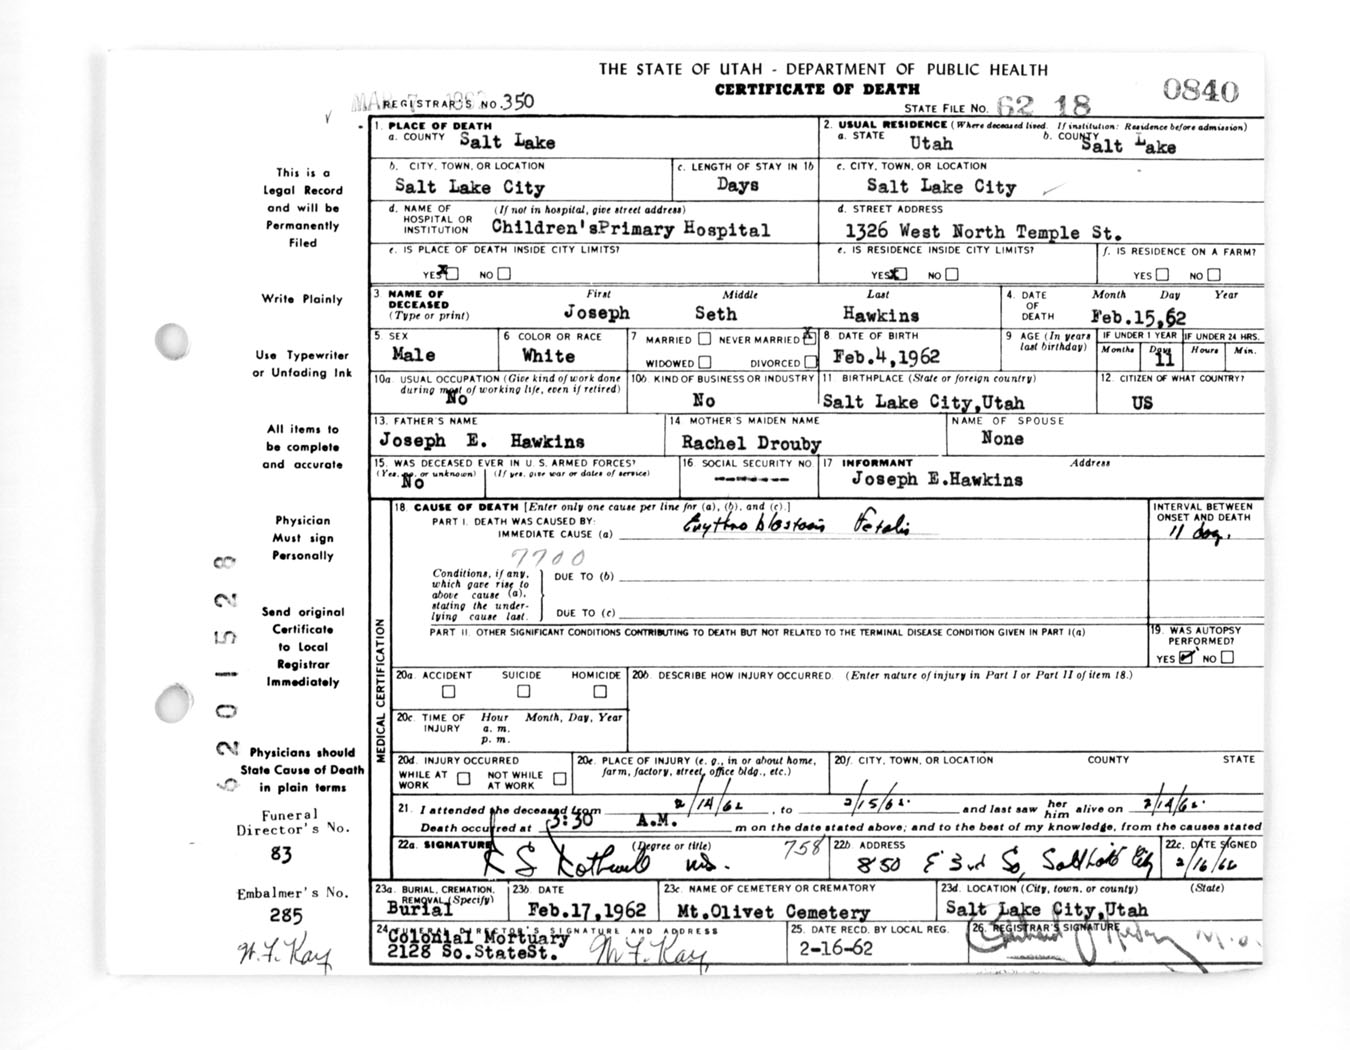 THE STATE OF UTAH - DEPARTMENT OF PUBLIC HEALTH
CERTIFICATE OF DEATH
0840
REGISTRAR'S NO. 350
STATE FILE NO. 62 18
This is a
Legal Record
and will be
Permanently
Filed
Write Plainly
Use Typewriter
or Unfading Ink
All items to
be complete
and accurate
Physician
Must sign
Personally
Send original
Certificate
to Local
Registrar
Immediately
Physicians should
State Cause of Death
in plain terms
Funeral
Director's No.
83
Embalmer's No.
285
W. F. Kay
1. PLACE OF DEATH
a. COUNTY Salt Lake
2. USUAL RESIDENCE (Where deceased lived. If institution: Residence before admission)
a. STATE Utah b. COUNTY Salt Lake
b. CITY, TOWN, OR LOCATION
Salt Lake City
c. LENGTH OF STAY IN 1b
Days
c. CITY, TOWN, OR LOCATION
Salt Lake City
d. NAME OF HOSPITAL OR INSTITUTION (If not in hospital, give street address)
Children'sPrimary Hospital
d. STREET ADDRESS
1326 West North Temple St.
e. IS PLACE OF DEATH INSIDE CITY LIMITS?
YES NO
e. IS RESIDENCE INSIDE CITY LIMITS?
YES NO
f. IS RESIDENCE ON A FARM?
YES NO
3 NAME OF DECEASED (Type or print)
First Middle Last
Joseph Seth Hawkins
4. DATE OF DEATH Month Day Year
Feb.15,62
5. SEX
Male
6 COLOR OR RACE
White
7 MARRIED NEVER MARRIED
WIDOWED DIVORCED
8 DATE OF BIRTH
Feb.4,1962
9 AGE (In years last birthday)
IF UNDER 1 YEAR IF UNDER 24 HRS.
Months Days Hours Min.
11
10a. USUAL OCCUPATION (Give kind of work done during most of working life, even if retired)
No
10b KIND OF BUSINESS OR INDUSTRY
No
11 BIRTHPLACE (State or foreign country)
Salt Lake City,Utah
12. CITIZEN OF WHAT COUNTRY?
US
13. FATHER'S NAME
Joseph E. Hawkins
14 MOTHER'S MAIDEN NAME
Rachel Drouby
NAME OF SPOUSE
None
15. WAS DECEASED EVER IN U.S. ARMED FORCES?
(Yes, no, or unknown) (If yes, give war or dates of service)
No
16 SOCIAL SECURITY NO.
-------
17 INFORMANT Address
Joseph E.Hawkins
MEDICAL CERTIFICATION
18. CAUSE OF DEATH [Enter only one cause per line for (a), (b), and (c).]
PART I. DEATH WAS CAUSED BY:
IMMEDIATE CAUSE (a) Erythroblastosis Fetalis
INTERVAL BETWEEN ONSET AND DEATH
11 days.
7700
Conditions, if any, which gave rise to above cause (a), stating the underlying cause last.
DUE TO (b)
DUE TO (c)
PART II. OTHER SIGNIFICANT CONDITIONS CONTRIBUTING TO DEATH BUT NOT RELATED TO THE TERMINAL DISEASE CONDITION GIVEN IN PART I(a)
19. WAS AUTOPSY PERFORMED?
YES NO
20a. ACCIDENT SUICIDE HOMICIDE
20b. DESCRIBE HOW INJURY OCCURRED. (Enter nature of injury in Part I or Part II of item 18.)
20c. TIME OF INJURY Hour Month, Day, Year
a. m.
p. m.
20d. INJURY OCCURRED
WHILE AT WORK NOT WHILE AT WORK
20e. PLACE OF INJURY (e. g., in or about home, farm, factory, street, office bldg., etc.)
20f. CITY, TOWN, OR LOCATION COUNTY STATE
21. I attended the deceased from 2/14/62, to 2/15/62 and last saw her him alive on 2/14/62
Death occurred at 3:30 A.M. m on the date stated above; and to the best of my knowledge, from the causes stated
22a. SIGNATURE (Degree or title) 758
K S Rothwell MD.
22b ADDRESS
850 E 3rd So, Salt Lake City
22c. DATE SIGNED
2/16/62
23a. BURIAL, CREMATION, REMOVAL (Specify)
Burial
23b DATE
Feb.17,1962
23c. NAME OF CEMETERY OR CREMATORY
Mt.Olivet Cemetery
23d. LOCATION (City, town, or county) (State)
Salt Lake City,Utah
24. FUNERAL DIRECTOR'S SIGNATURE AND ADDRESS
Colonial Mortuary
2128 So.StateSt. W F. Kay
25. DATE RECD. BY LOCAL REG.
2-16-62
26. REGISTRAR'S SIGNATURE